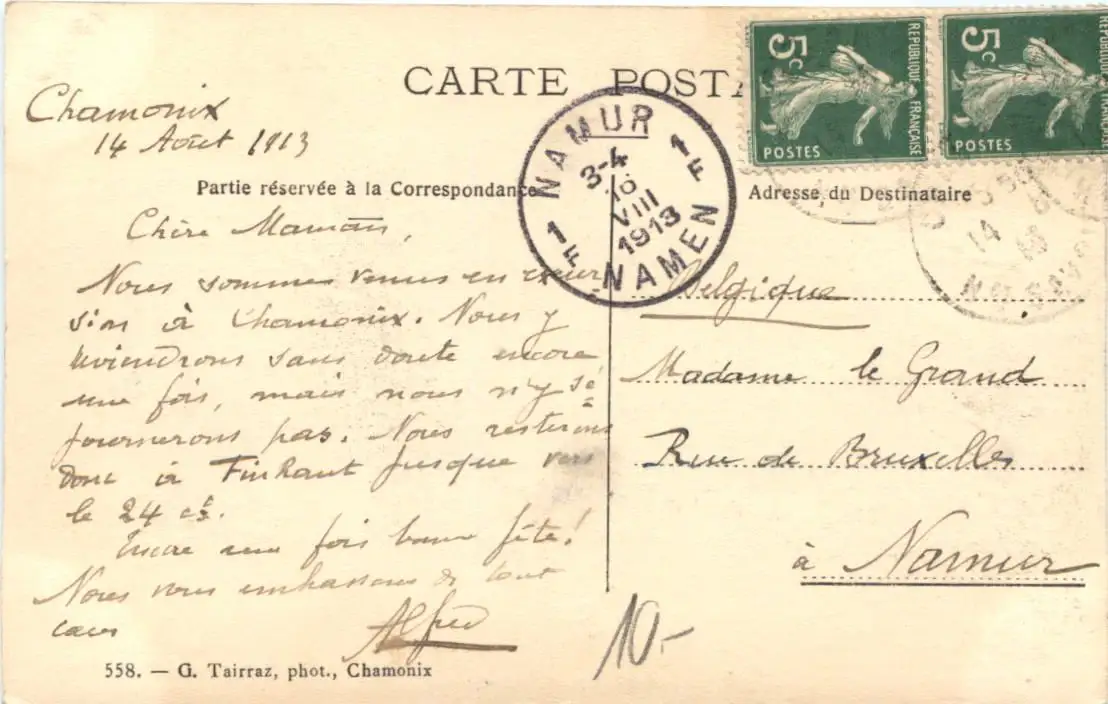 CARTE POSTA
5c
REPUBLIQUE FRANÇAISE
POSTES
5c
REPUBLIQUE FRANÇAISE
POSTES
Chamonix
14 Août 1913
NAMUR
1F 1F
3-4
16
VIII
1913
NAMEN
Partie réservée à la Correspondance
Adresse du Destinataire
14
Chère Maman,
Nous sommes venus en excur
sion à Chamonix. Nous y
reviendrons sans doute encore
une fois, mais nous n'y sé
journerons pas. Nous resterons
donc à Finhaut jusque vers
le 24 ct.
Encore une fois bonne fête!
Nous vous embrassons de tout
cœur
Alfred
Belgique
Madame le Grand
Rue de Bruxelles
à Namur
10-
558. — G. Tairraz, phot., Chamonix